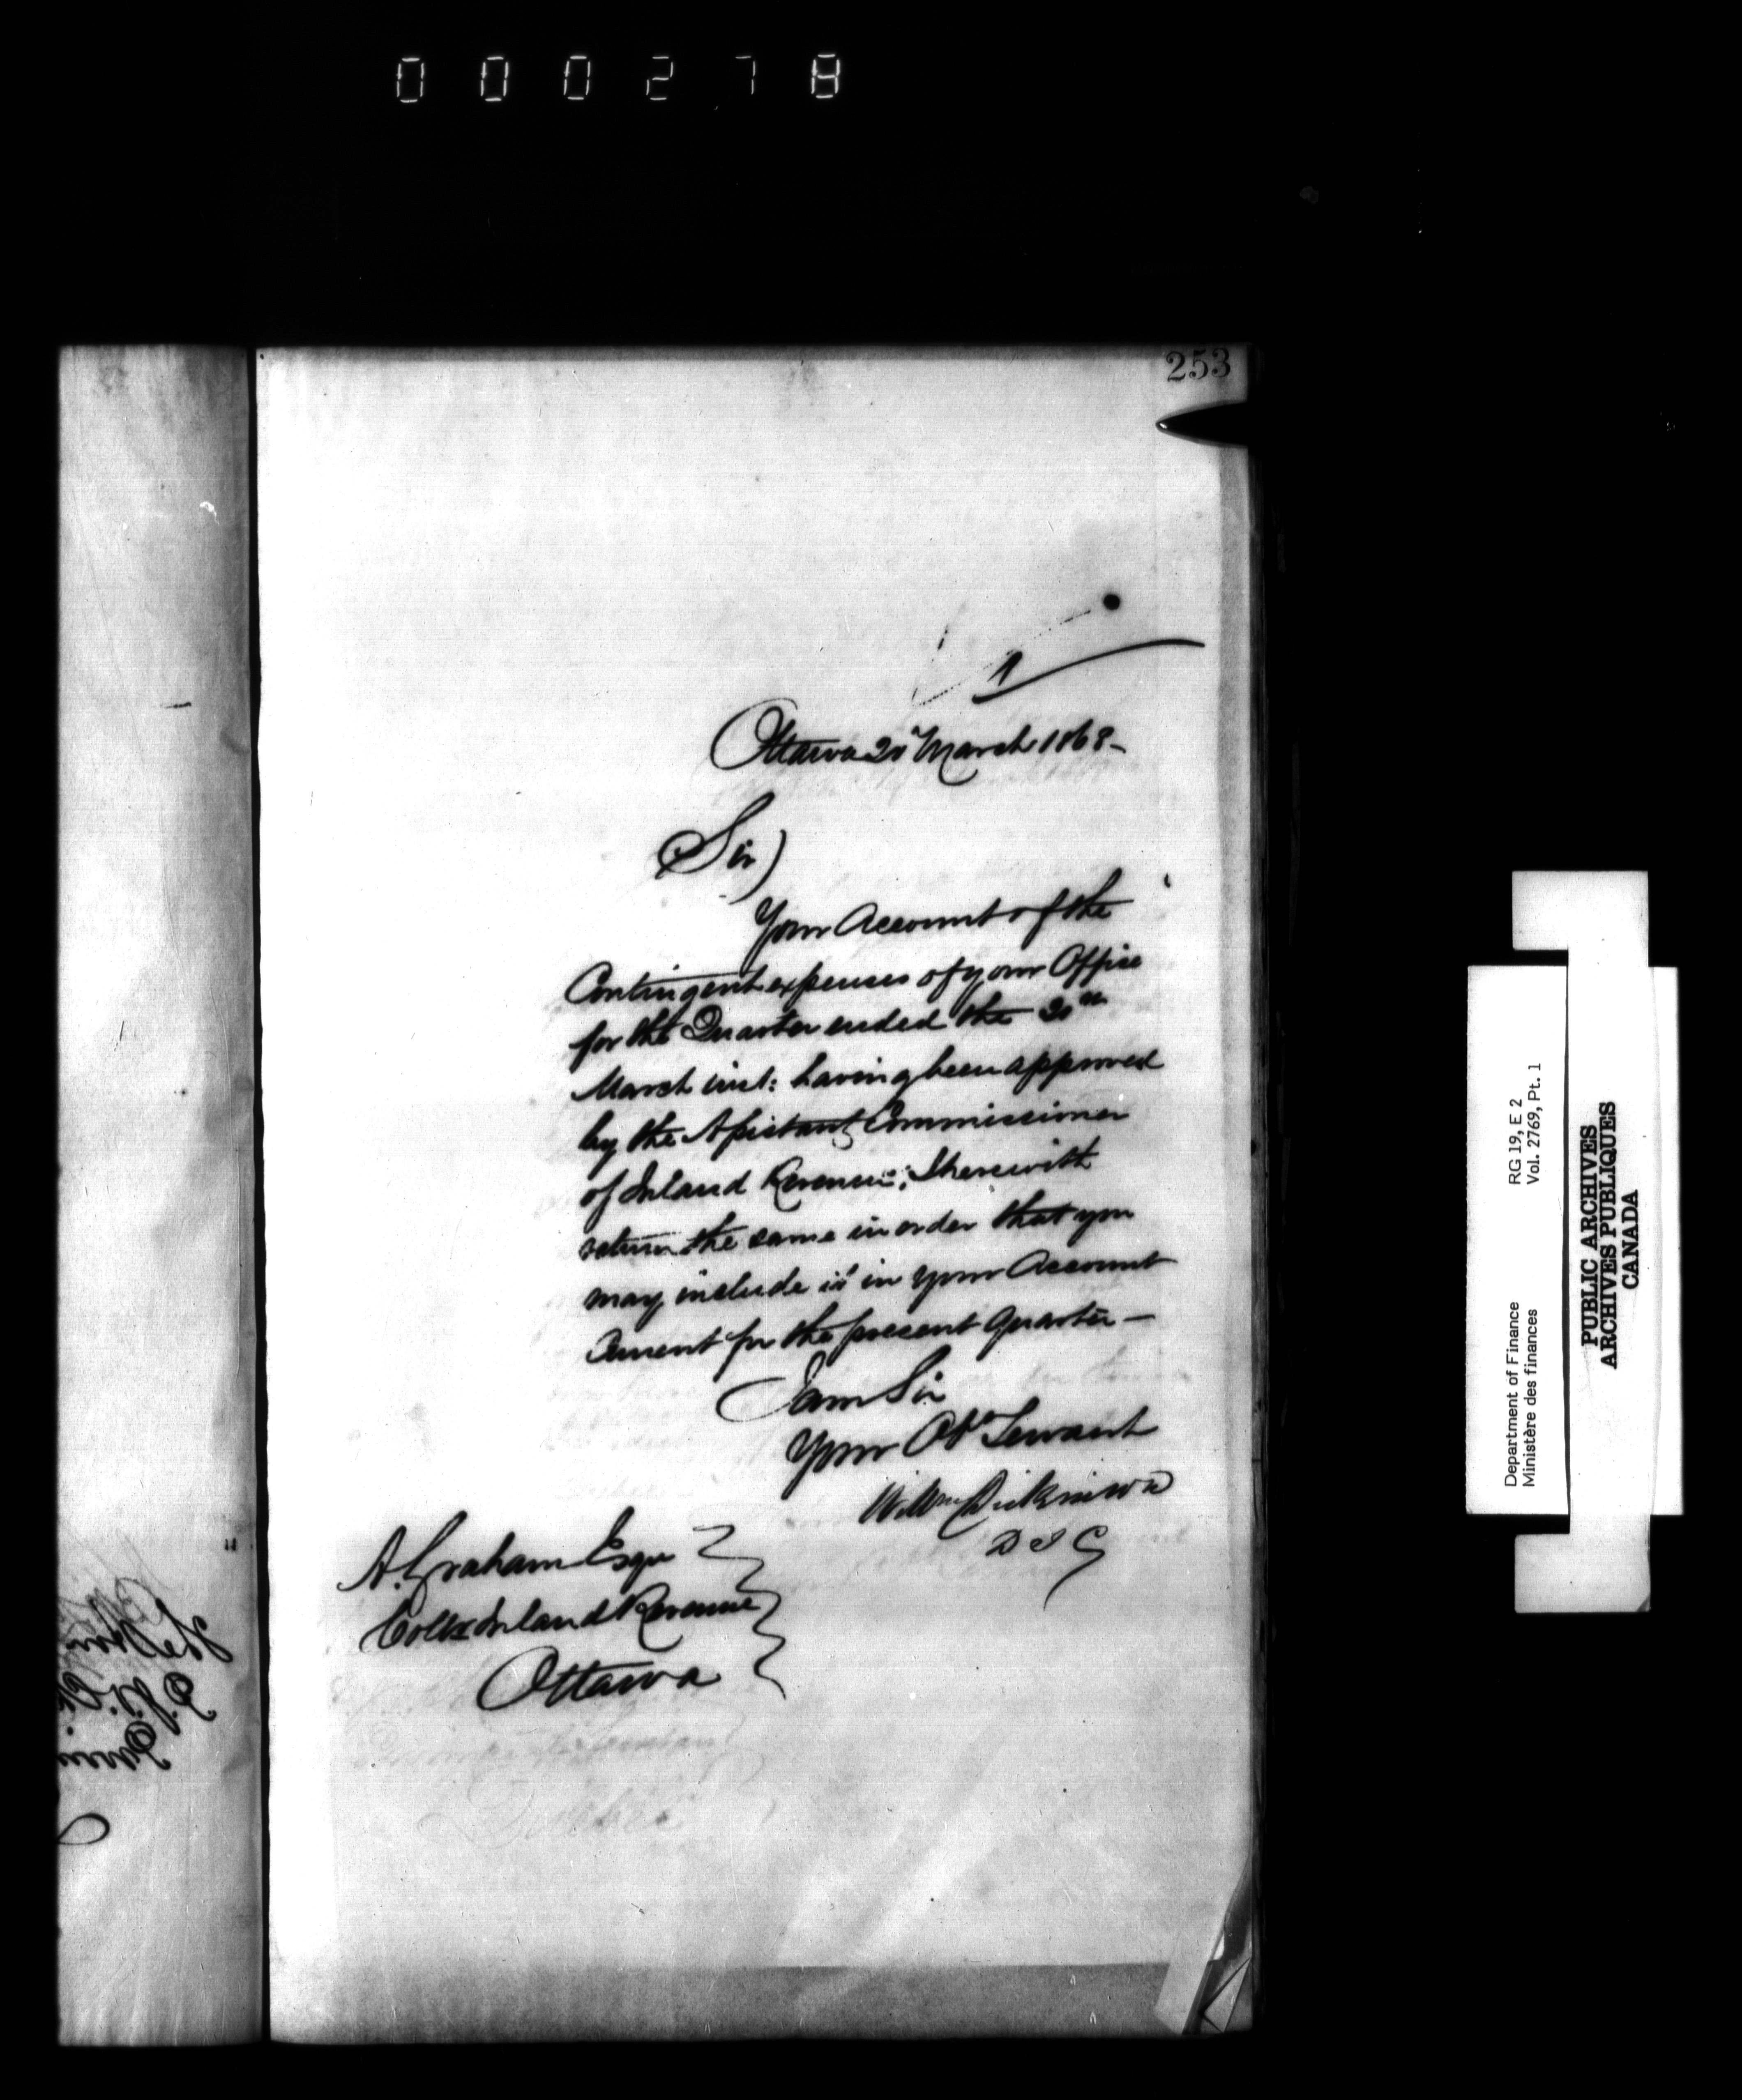 000278
253
Ottawa 20 March 1868-
Sir
Your Account of the
Contingent expenses of your Office
for the Quarter ended the 20th
March inst: having been approved
by the Assistant Commissioner
of Inland Revenue; I herewith
return the same in order that you
may include it in your Account
Current for the present Quarter-
I am Sir
Your Obt Servant
Willm Dickinson
D I G
A. Graham Esqre
Collr Inland Revenue
Ottawa
Department of Finance RG 19, E 2
Ministère des finances Vol. 2769, Pt. 1
PUBLIC ARCHIVES
ARCHIVES PUBLIQUES
CANADA